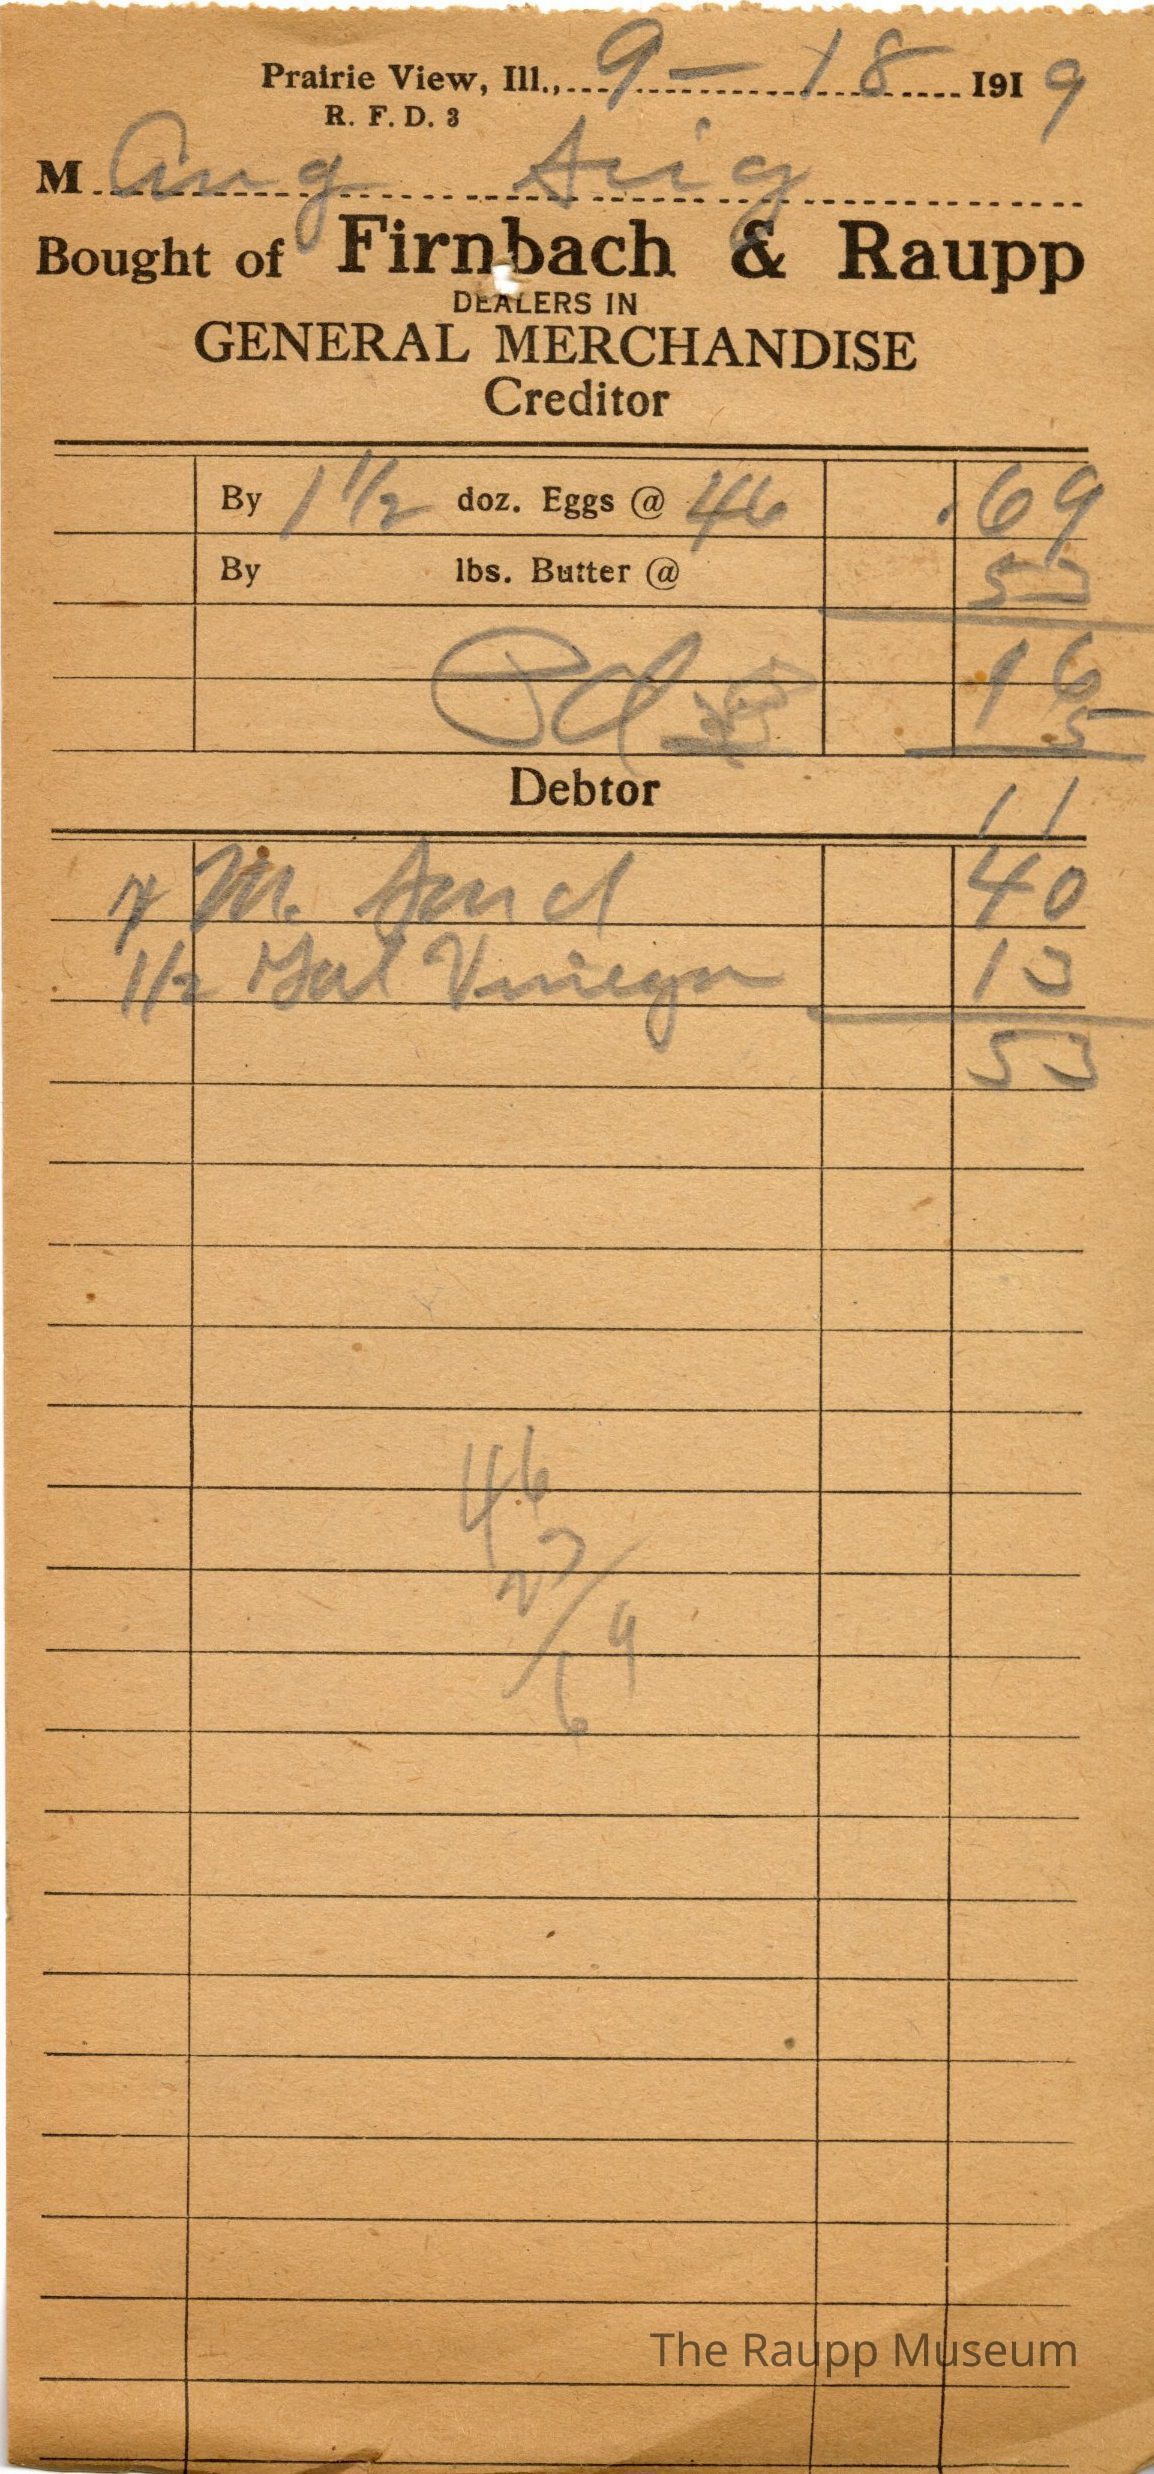 Prairie View, Ill., 9-18 1919
R. F. D. 3
M Aug
Bought of Firnbach & Raupp
DEALERS IN
GENERAL MERCHANDISE
Creditor
By 1 1/2 doz. Eggs @ 46 .69
By lbs. Butter @ 53
Pd 16
5
Debtor 11
M. 40
1/2 Gal Vinegar 13
53
46
23
69
The Raupp Museum